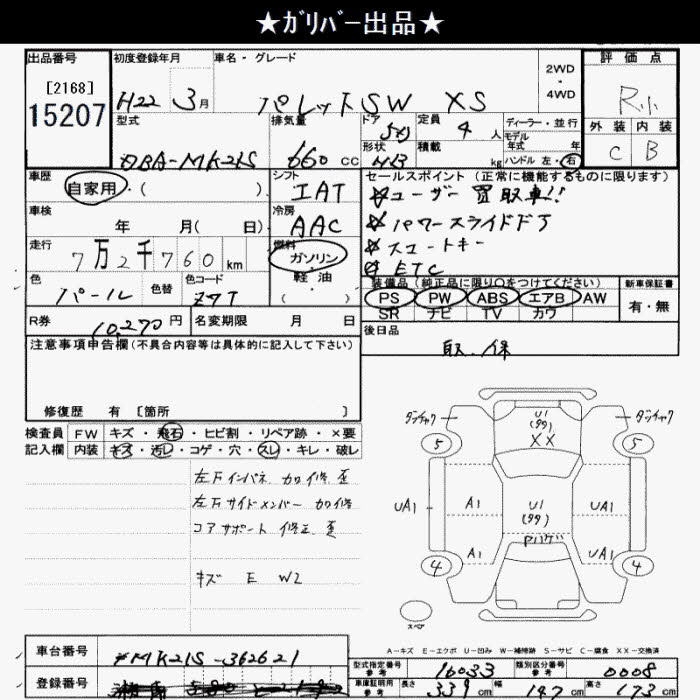 ★ｶﾞﾘﾊﾞｰ出品★
出品番号 初度登録年月 車名・グレード 2WD・4WD 評価点
[2168]
15207
H22 3月 パレットSW XS R小
型式 排気量 ドア 定員 ディーラー・並行 外装 内装
DBA-MK21S 660 CC 4人 モデル年式 年 C B
形状 積載 kg ハンドル 左・右
車歴 シフト セールスポイント (正常に機能するものに限ります)
自家用・( ) IAT ☆ユーザー買取車!!
車検 冷房 ☆パワースライドドア
年 月( 日) AAC ☆スマートキー
走行 燃料 ☆ETC
7万2千760km ガソリン・軽油 ( )
色 色替 色コード
パール Z7T
装備品 (純正品に限り○をつけてください) 新車保証書
PS PW ABS エアB AW 有・無
SR ナビ TV カワ
R券 10,270円 名変期限 月 日 後日品
取.保
注意事項申告欄(不具合内容等は具体的に記入して下さい)
修復歴 有 [箇所 ]
検査員 FW キズ・飛石・ヒビ割・リペア跡・×要
記入欄 内装 キズ・汚レ・コゲ・穴・スレ・キレ・破レ
左Fインパネ カロ修 歪
左Fサイドメンバー カロ修
コアサポート 修正 歪
キズ E W2
U1
(99)
XX
5 5
UA1 A1 U1 UA1
(99)
A1 UA1
4 4
スペア
A-キズ E-エクボ U-凹み W-補修跡 S-サビ C-腐食 XX-交換済
車台番号 MK21S-362621
登録番号
型式指定番号 参考 16033 類別区分番号 参考 0008
車庫証明用 参考 長さ 339cm 幅 147cm 高さ 173cm